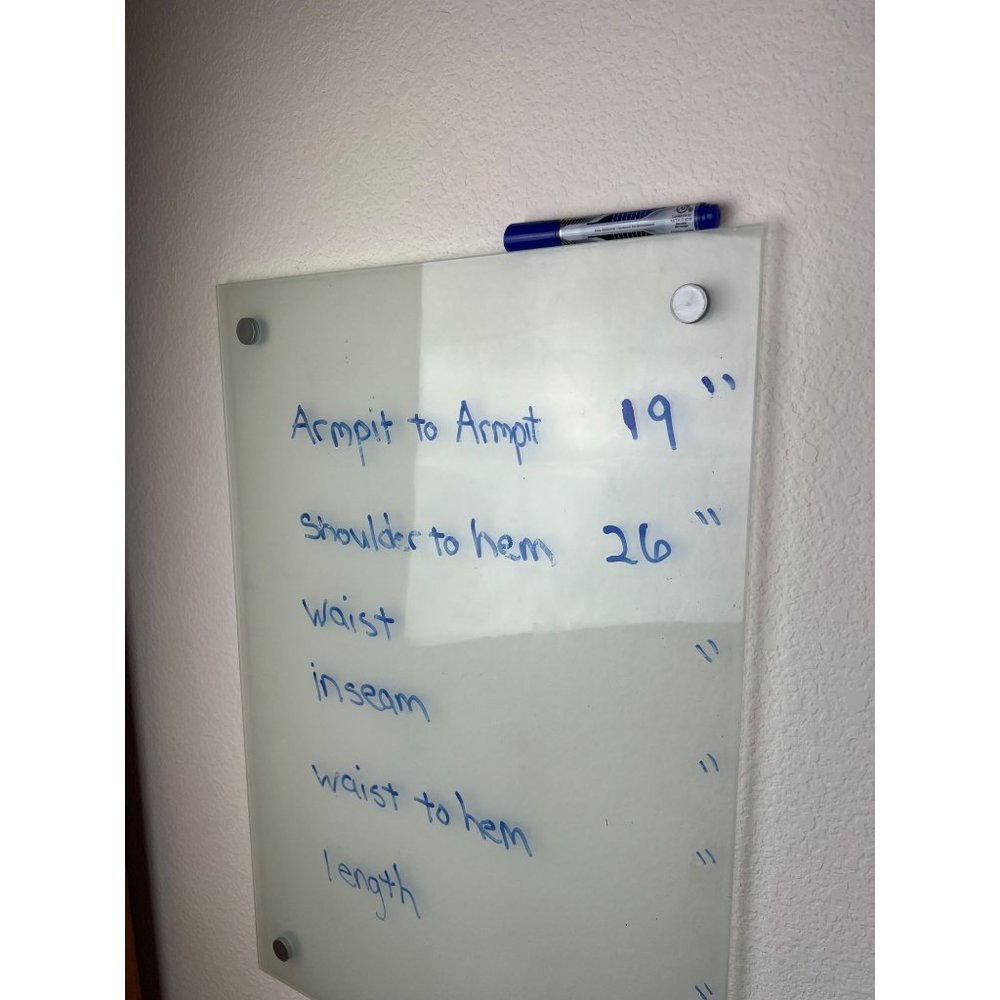 Armpit to Armpit 19"
shoulder to hem 26"
waist "
inseam "
waist to hem "
length "